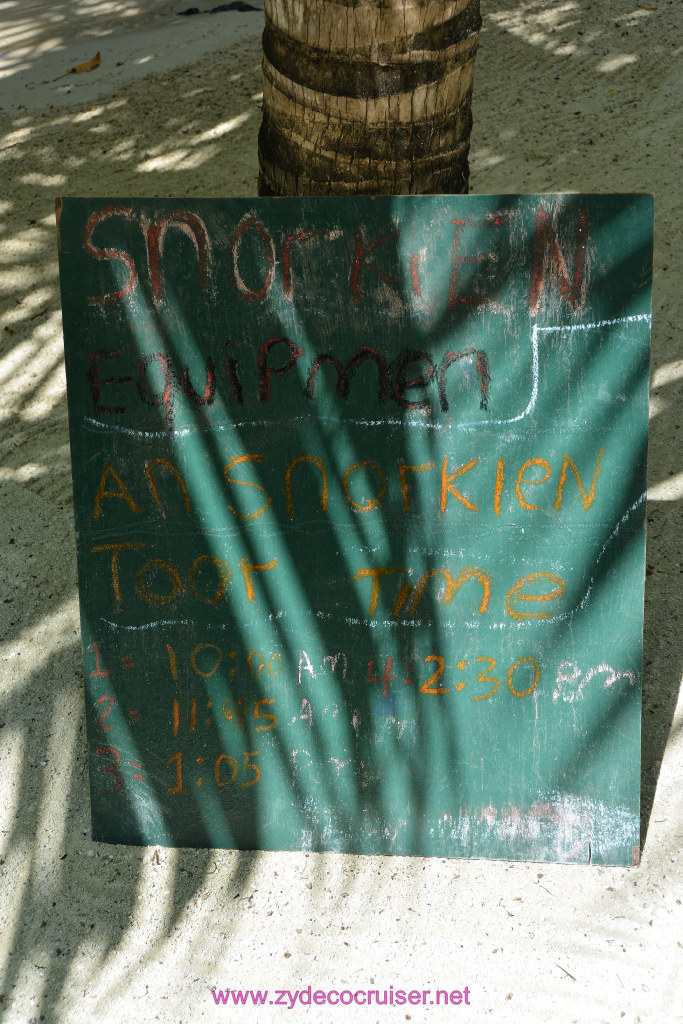 SnorkiEN
EquiPmen
An SnorkieN
Toor Time
1= 10:00 Am 4= 2:30 pm
2= 11:45 Am
3= 1:05 Pm
www.zydecocruiser.net